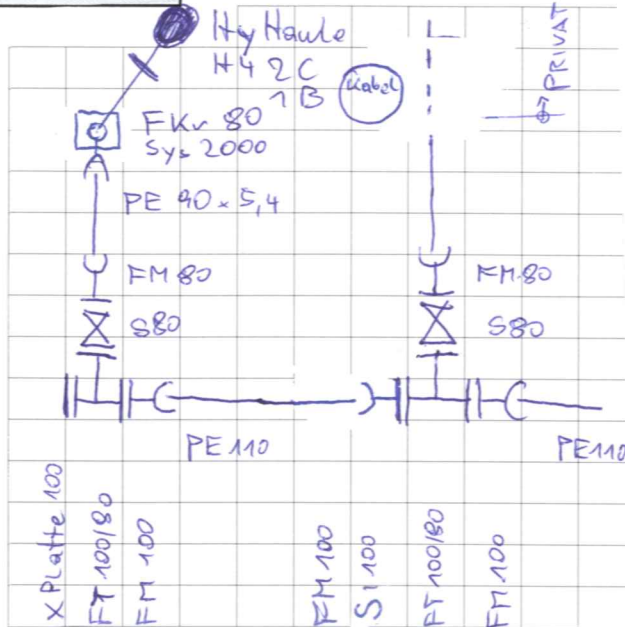 Hy Hawle
H4 2C
1B
Kabel
PRIVAT
FKr 80
Sys 2000
PE 90 x 5,4
FM 80
FM 80
S80
S80
PE 110
PE 110
X Platte 100
FT 100/80
FM 100
FM 100
S1 100
FT 100/80
FM 100